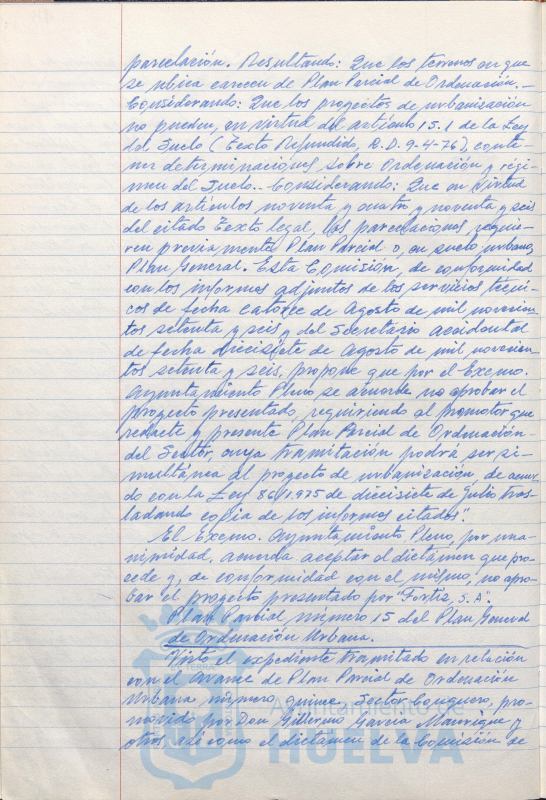 parcelación. Resultando: Que los terrenos en que
se ubica carecen de Plan Parcial de Ordenación.-
Considerando: Que los proyectos de urbanización
no pueden, en virtud del artículo 15.1 de la Ley
del Suelo (Texto Refundido, R.D. 9-4-76), conte-
ner determinaciones sobre Ordenación y régi-
men del Suelo.- Considerando: Que en virtud
de los artículos noventa y cuatro y noventa y seis
del citado Texto legal, las parcelaciones requie-
ren previamente Plan Parcial o, en suelo urbano,
Plan General. Esta Comisión, de conformidad
con los informes adjuntos de los servicios técni-
cos de fecha catorce de Agosto de mil novecien-
tos setenta y seis y del Secretario accidental
de fecha diecisiete de Agosto de mil novecien-
tos setenta y seis, propone que por el Excmo.
Ayuntamiento Pleno se acuerde no aprobar el
proyecto presentado, requiriendo al promotor que
redacte y presente Plan Parcial de Ordenación-
del Sector, cuya tramitación podrá ser si-
multánea al proyecto de urbanización, de acuer-
do con la Ley 86/1.975 de diecisiete de Julio tras-
ladando copia de los informes citados".
El Excmo. Ayuntamiento Pleno, por una-
nimidad, acuerda aceptar el dictámen que pro-
cede y, de conformidad con el mismo, no apro-
bar el proyecto presentado por "Fortiz, S.A".
Plan Parcial número 15 del Plan General
de Ordenación Urbana.
Visto el expediente tramitado en relación
con el avance de Plan Parcial de Ordenación
Urbana número quince, Sector Conquero, pro-
movido por Don Guillermo García Manrique y
otros, así como el dictámen de la Comisión de
Ayuntamiento de
HUELVA